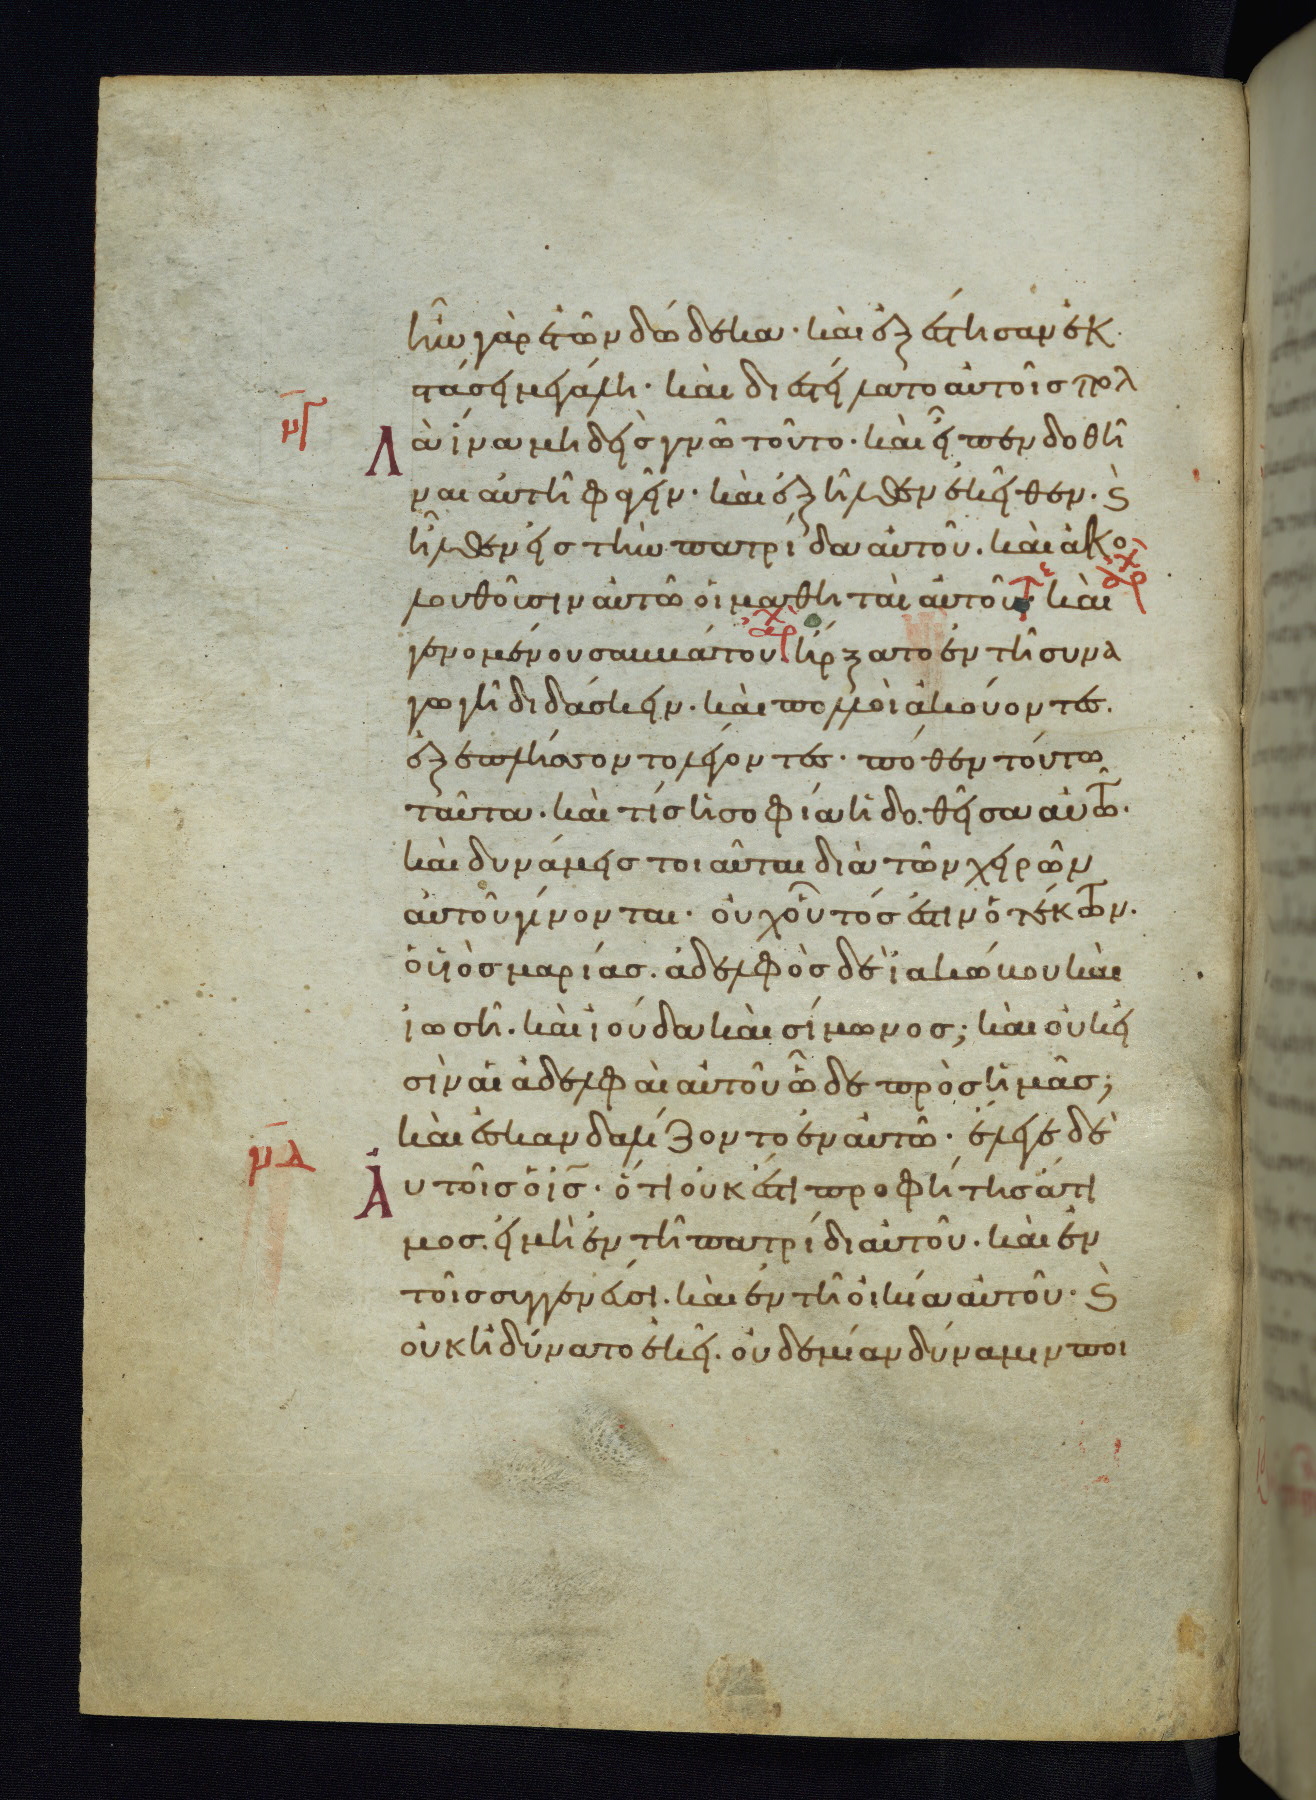 ἦν γὰρ ἐτῶν δώδεκα· καὶ ἐξέστησαν ἐκ
στάσει μεγάλη· καὶ διεστείλατο αὐτοῖς πολ
μγ
Λὰ ἵνα μηδεὶς γνῶ τοῦτο· καὶ εἶπεν δοθῆ
ναι αὐτῆ φαγεῖν· καὶ ἐξῆλθεν ἐκεῖθεν· ϗ
ἦλθεν εἰς τὴν πατρίδα αὐτοῦ. καὶ ἀκο
λουθοῦσιν αὐτῶ οἱ μαθηταὶ αὐτοῦ· καὶ
γενομένου σαββάτου ἤρξατο ἐν τῆ συνα
γωγῆ διδάσκειν· καὶ πολλοὶ ἀκούοντες.
ἐξεπλήσσοντο λέγοντες· πόθεν τούτω
ταῦτα· καὶ τίς ἡ σοφία ἡ δοθεῖσα αὐτῶ·
καὶ δυνάμεις τοιαῦται διὰ τῶν χειρῶν
αὐτοῦ γίνονται· οὐχ οὗτός ἐστιν ὁ τέκτων.
ὁ υἱὸς μαρίας. ἀδελφὸς δὲ ἰακώβου καὶ
ἰωσῆ. καὶ ἰούδα καὶ σίμωνος; καὶ οὐκ εἰ
σὶν αἱ ἀδελφαὶ αὐτοῦ ὧδε πρὸς ἡμᾶς;
καὶ ἐσκανδαλίζοντο ἐν αὐτῶ· ἔλεγε δὲ
μδ
Αὐτοῖς ὁ ἰς· ὅτι οὐκ ἔστι προφήτης ἄτι
μος. εἰ μὴ ἐν τῆ πατρίδι αὐτοῦ. καὶ ἐν
τοῖς συγγενέσι. καὶ ἐν τῆ οἰκία αὐτοῦ· ϗ
οὐκ ἠδύνατο ἐκεῖ. οὐδεμίαν δύναμιν ποι